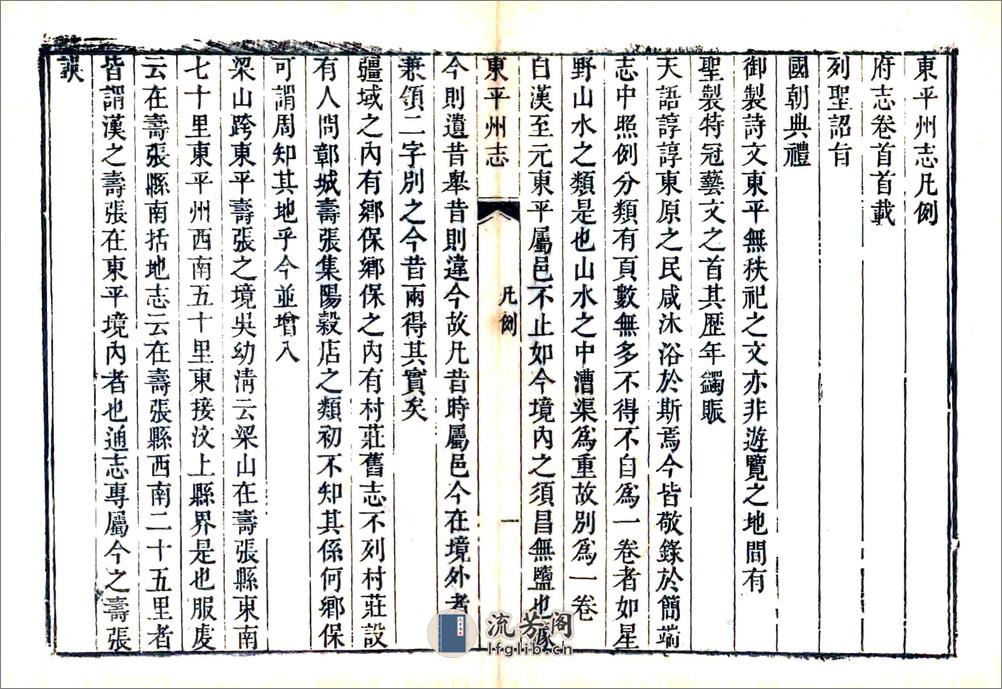 東平州志凡例
府志卷首首載
列聖詔旨
國朝典禮
御製詩文東平無秩祀之文亦非遊覽之地間有
聖製特冠藝文之首其歷年蠲賑
天語諄諄東原之民咸沐浴於斯焉今皆敬錄於簡端
志中照例分類有頁數無多不得不自爲一卷者如星
野山水之類是也山水之中漕渠爲重故別爲一卷
自漢至元東平屬邑不止如今境內之須昌無鹽也
東平州志
凡例
一
今則遺昔舉昔則違今故凡昔時屬邑今在境外者
兼領二字別之今昔兩得其實矣
疆域之內有鄉保鄉保之內有村莊舊志不列村莊設
有人問鄣城壽張集陽穀店之類初不知其係何鄉保
可謂周知其地乎今並增入
梁山跨東平壽張之境吳幼清云梁山在壽張縣東南
七十里東平州西南五十里東接汶上縣界是也服虔
云在壽張縣南括地志云在壽張縣西南二十五里者
皆謂漢之壽張在東平境內者也通志專屬今之壽張
誤
流芳阁
lfglib.cn